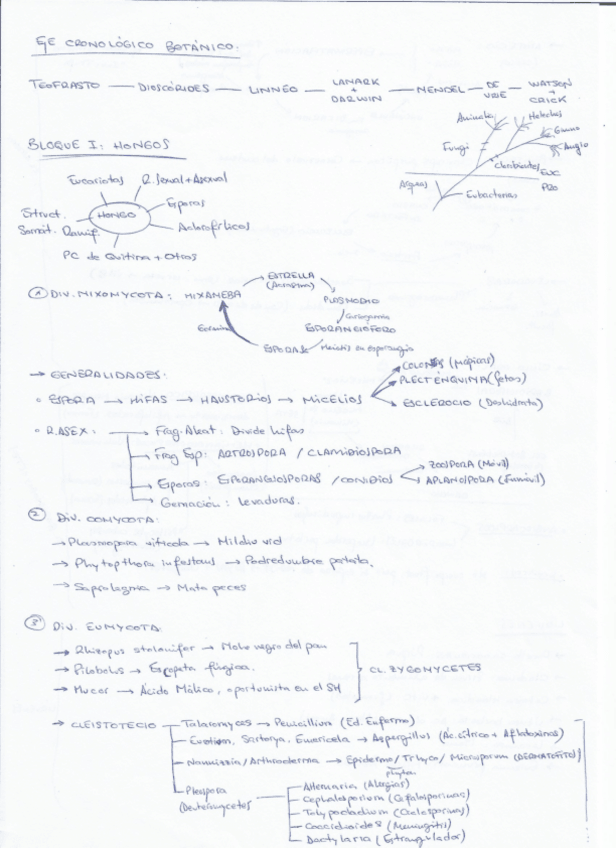 EJE CRONOLÓGICO BOTÁNICO.
TEOFRASTO — DIOSCÓRIDES — LINNEO — LAMARK + DARWIN — MENDEL — DE VRIE — WATSON + CRICK
Animales Helechos
Gimno
Fungi Angio
EUC
Arqueas PRO
Eubacterias
BLOQUE I: HONGOS
Eucariotas R. Sexual + Asexual
Esporas
HONGO
Struct. Somát. Ramif.
Aclorofílicos
PC de Quitina + Otros
① DIV. MIXOMYCOTA: MIXAMEBA
ESTRELLA
PLASMODIO
ESPORANGIOFORO
Meiosis en esporangio
ESPORAS
→ GENERALIDADES:
° ESPORA → HIFAS → HAUSTORIOS → MICELIOS
COLONIAS
PLECTÉNQUIMA (fetos)
ESCLEROCIO (Deshidrata)
° R. ASEX: Frag. Aleat: Divide hifas
Frag Esp: ARTROSPORA / CLAMIDIOSPORA
Esporas: ESPORANGIOSPORAS / CONIDIOS
ZOOSPORA (Móvil)
APLANOSPORA (Inmóvil)
Gemación: Levaduras.
② DIV. OOMYCOTA:
→ Plasmopara viticola → Mildiu vid
→ Phytopthora infestans → Podredumbre patata.
→ Saprolegnia → Mata peces
③ DIV. EUMYCOTA:
→ Rhizopus stolonifer → Moho negro del pan
→ Pilobolus → Escopeta fúngica.
→ Mucor → Ácido Málico, oportunista en el SH
CL. ZYGOMYCETES
→ CLEISTOTECIO Talaromyces → Penicillium (Ed. Enfermo)
Sartorya, Emericela → Aspergillus (Ác. cítrico + Aflatoxinas)
Nannizzia / Arthroderma → Epidermo / Tricho / Microsporum (DERMATOFITOS)
phyton
Pleospora (Deuteromycetes)
Alternaria (Alergias)
Cephalosporium (Cefalosporinas)
Tolypocladium (Ciclosporinas)
Coccidioides (Meningitis)
Dactylaria (Estrangulador)